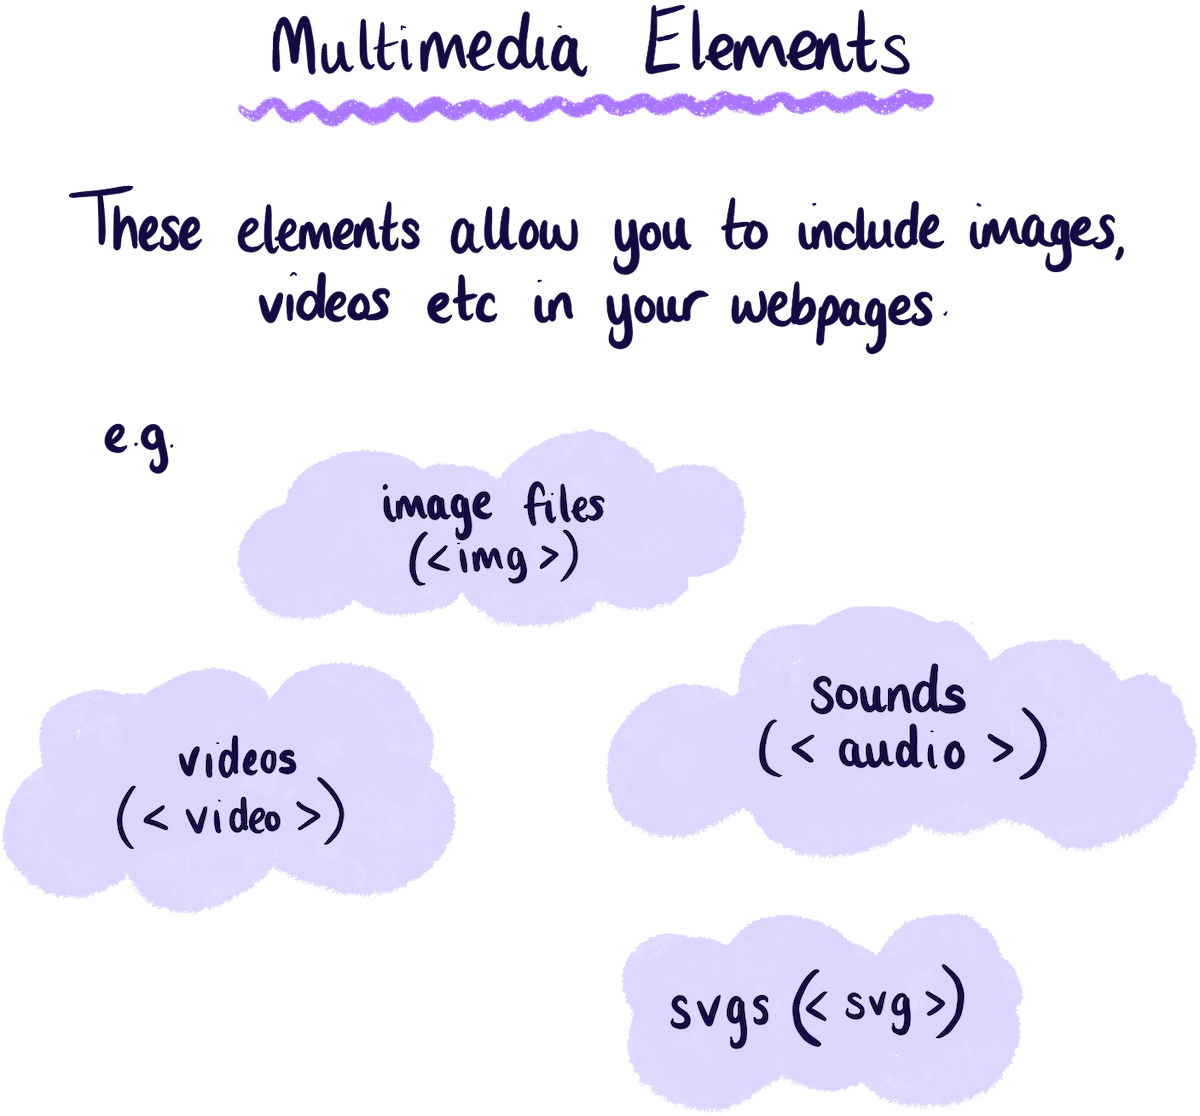 Multimedia Elements
These elements allow you to include images,
videos etc in your webpages.
e.g.
image files
(<img>)
sounds
(< audio >)
videos
(< video >)
svgs (< svg >)